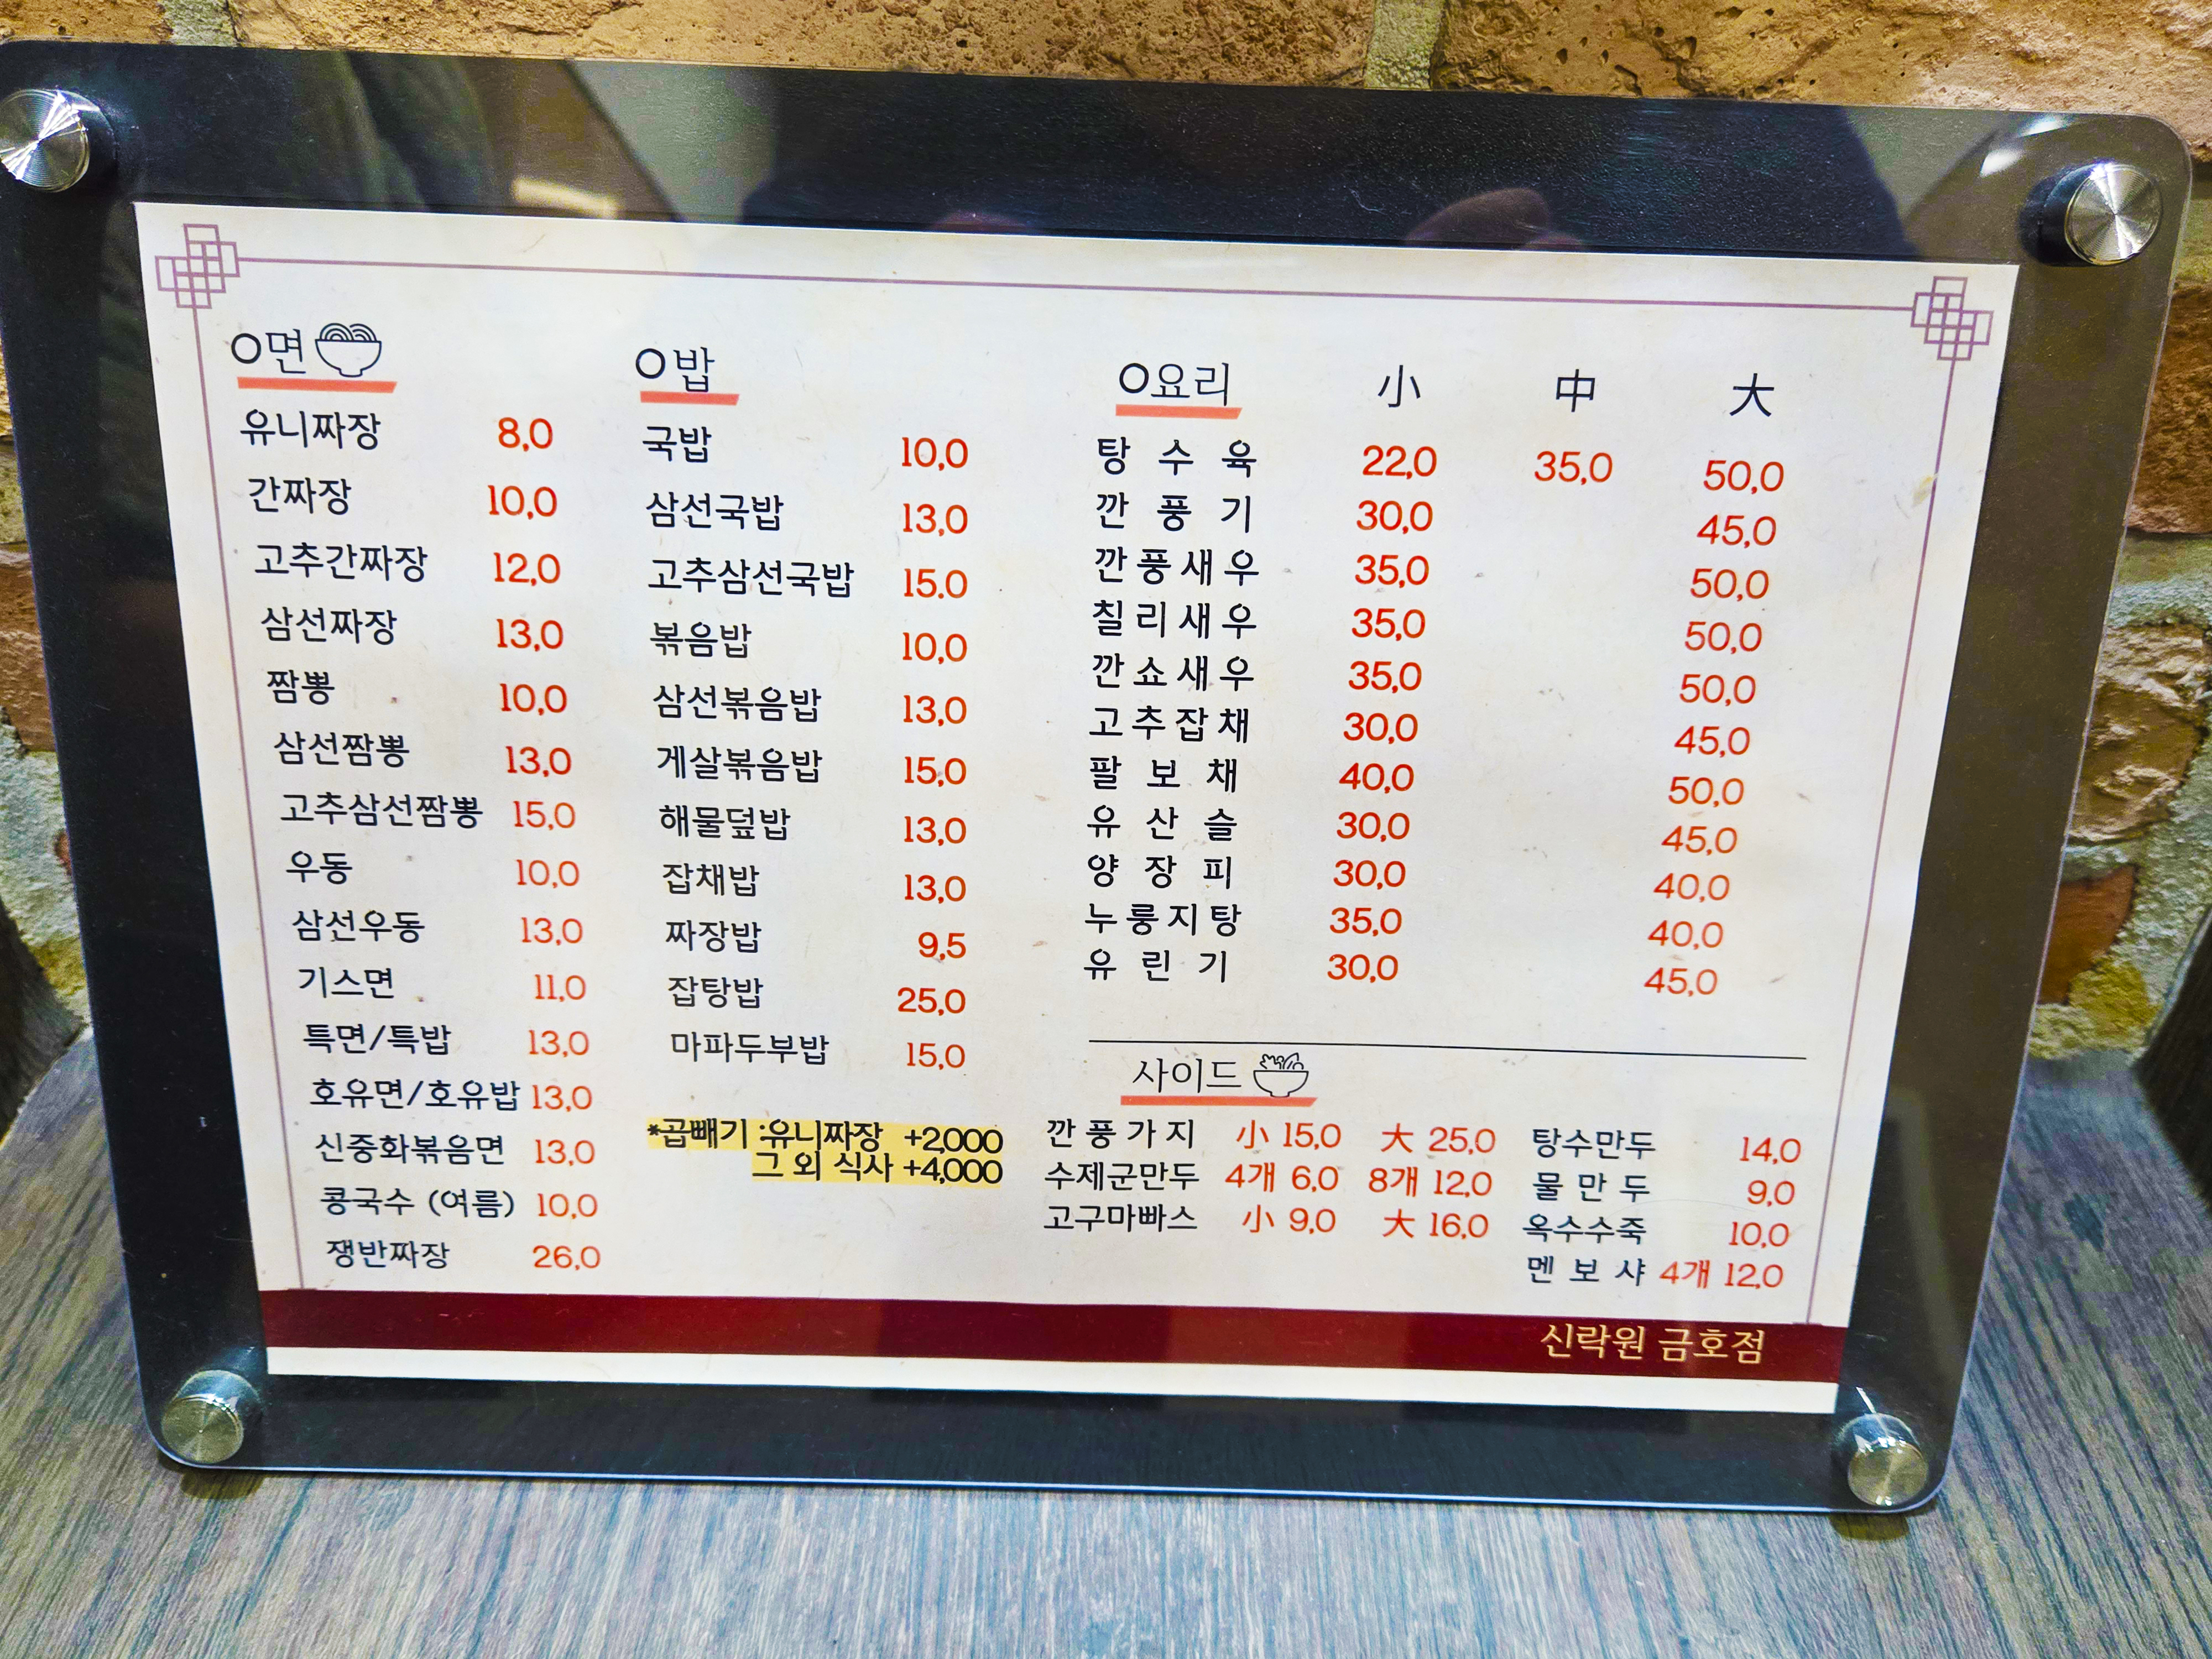 O면
유니짜장 8,0
간짜장 10,0
고추간짜장 12,0
삼선짜장 13,0
짬뽕 10,0
삼선짬뽕 13,0
고추삼선짬뽕 15,0
우동 10,0
삼선우동 13,0
기스면 11,0
특면/특밥 13,0
호유면/호유밥 13,0
신중화볶음면 13,0
콩국수 (여름) 10,0
쟁반짜장 26,0
O밥
국밥 10,0
삼선국밥 13,0
고추삼선국밥 15.0
볶음밥 10,0
삼선볶음밥 13,0
게살볶음밥 15,0
해물덮밥 13,0
잡채밥 13,0
짜장밥 9,5
잡탕밥 25,0
마파두부밥 15,0
*곱빼기 :유니짜장 +2,000
그 외 식사 +4,000
O요리 小 中 大
탕 수 육 22,0 35,0 50,0
깐 풍 기 30,0 45,0
깐풍새우 35,0 50,0
칠리새우 35,0 50,0
깐쇼새우 35,0 50,0
고추잡채 30,0 45,0
팔 보 채 40,0 50,0
유 산 슬 30,0 45,0
양 장 피 30,0 40,0
누룽지탕 35,0 40,0
유 린 기 30,0 45,0
사이드
깐풍가지 小 15,0 大 25,0
수제군만두 4개 6,0 8개 12,0
고구마빠스 小 9,0 大 16,0
탕수만두 14,0
물 만 두 9,0
옥수수죽 10,0
멘 보 샤 4개 12,0
신락원 금호점